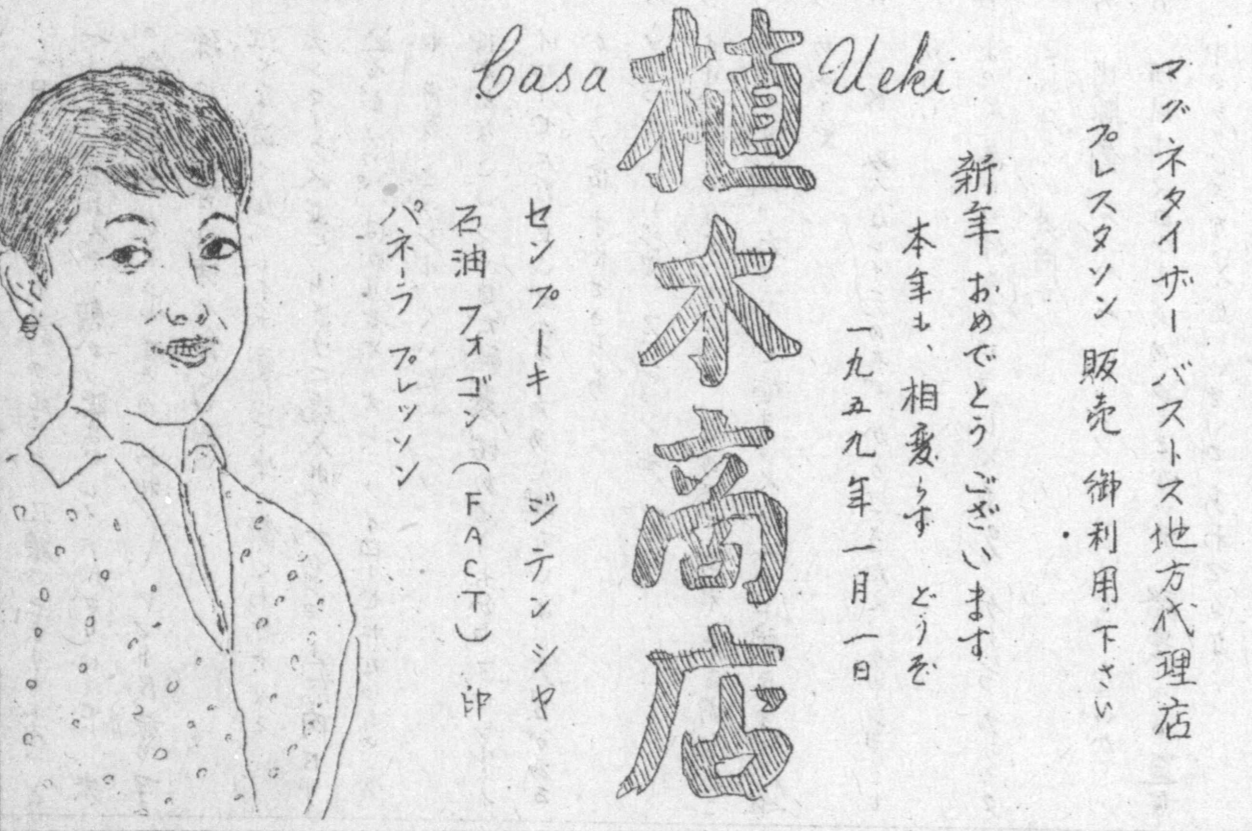 マグネタイザーバストス地方代理店
プレスタソン 販売 御利用下さい
新年おめでとうございます
本年も、相変らず どうぞ
一九五九年一月一日
Casa 植木商店 Ueki
センプーキ ジテンシャ
石油フォゴン(FACT)印
パネーラ プレッソン